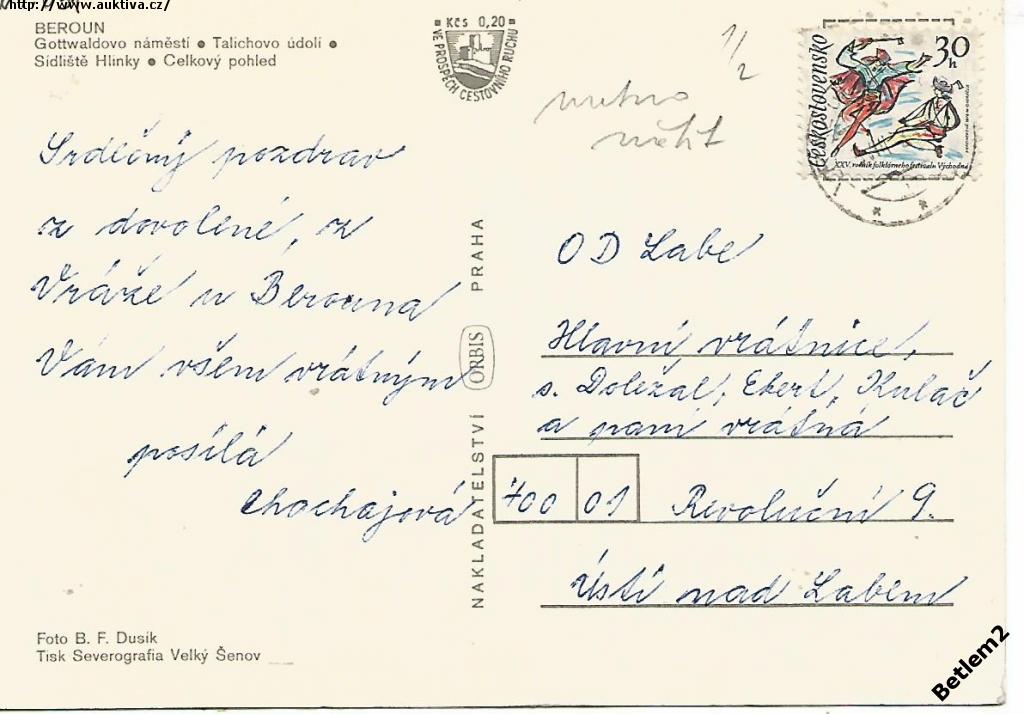 http://www.auktiva.cz/
BEROUN
Gottwaldovo náměstí ● Talichovo údolí ●
Sídliště Hlinky ● Celkový pohled
Kčs 0,20
VE PROSPĚCH CESTOVNÍHO RUCHU
1/2
Československo
30 h
XXV. ročník folklórneho festivalu Východná
Srdečný pozdrav
z dovolené, z
Vráže u Berouna
Vám všem vrátným
posílá
Chochajová
NAKLADATELSTVÍ ORBIS PRAHA
OD Labe
Hlavní vrátnice,
s. Doležal, Ekert, Kulač
a paní vrátná
400 01 Revoluční 9.
Ústí nad Labem
Foto B. F. Dusík
Tisk Severografia Velký Šenov
Betlem2